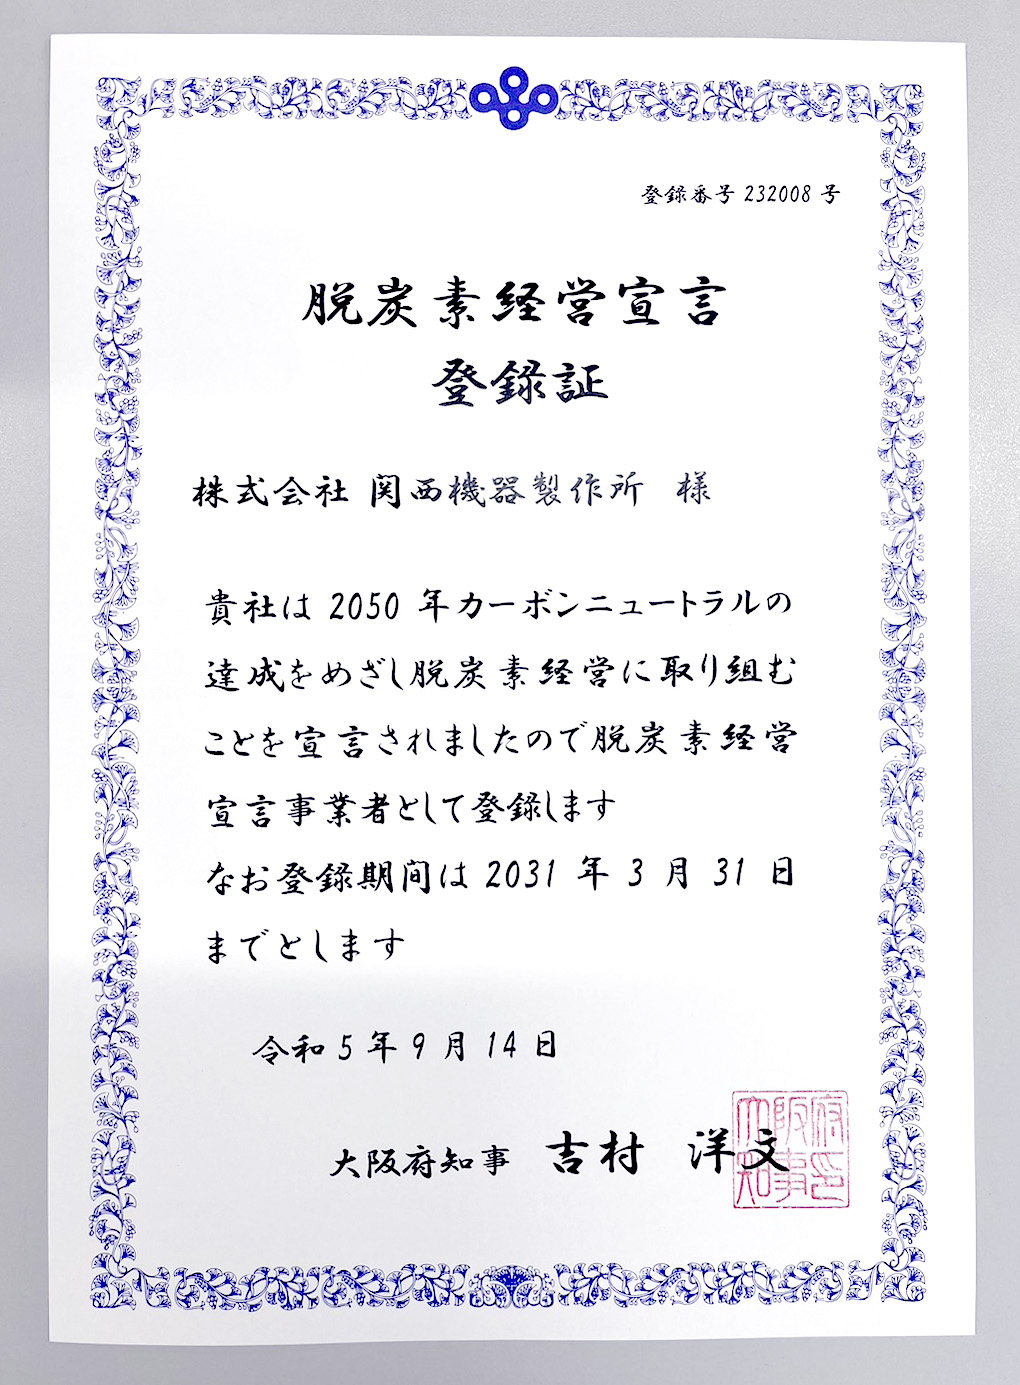 登録番号 232008 号
脱炭素経営宣言
登録証
株式会社 関西機器製作所 様
貴社は 2050 年カーボンニュートラルの
達成をめざし脱炭素経営に取り組む
ことを宣言されましたので脱炭素経営
宣言事業者として登録します
なお登録期間は 2031 年 3 月 31 日
までとします
令和 5 年 9 月 14 日
大阪府知事 吉村 洋文
大阪府知事印